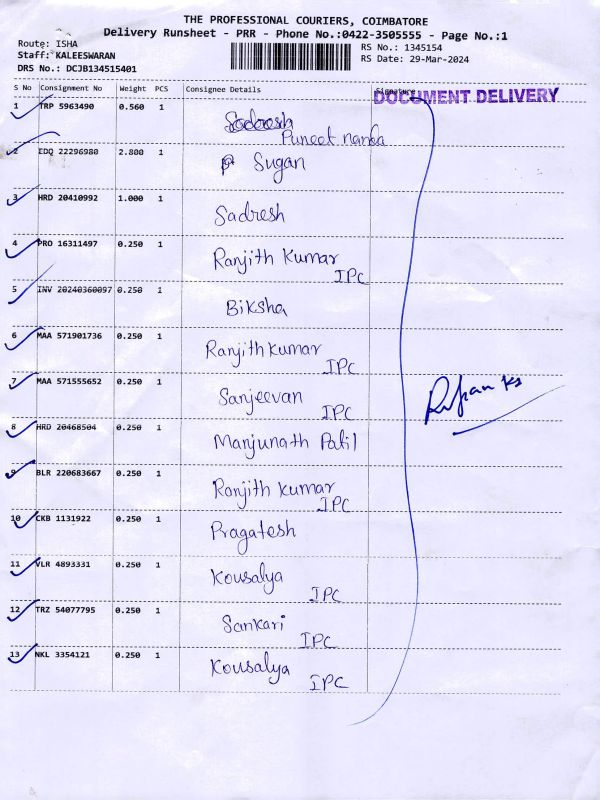 THE PROFESSIONAL COURIERS, COIMBATORE
Delivery Runsheet - PRR - Phone No.:0422-3505555 - Page No.:1
Route: ISHA
Staff: KALEESWARAN
DRS No.: DCJB134515401
RS No.: 1345154
RS Date: 29-Mar-2024
S No Consignment No Weight PCS Consignee Details Signature
DOCUMENT DELIVERY
1 TRP 5963490 0.560 1
Puneet nanda
2 EDQ 22296980 2.800 1 Sugan
3 HRD 20410992 1.000 1 Sadresh
4 PRO 16311497 0.250 1 Ranjith Kumar
IPC
5 INV 20240360097 0.250 1 Biksha
6 MAA 571901736 0.250 1 Ranjith kumar
IPC
7 MAA 571555652 0.250 1 Sanjeevan
IPC
8 HRD 20468504 0.250 1 Manjunath Patil
9 BLR 220683667 0.250 1 Ranjith kumar
IPC
10 CKB 1131922 0.250 1 Pragatesh
11 VLR 4893331 0.250 1 Kousalya
IPC
12 TRZ 54077795 0.250 1 Sankari
IPC
13 NKL 3354121 0.250 1 Kousalya
IPC